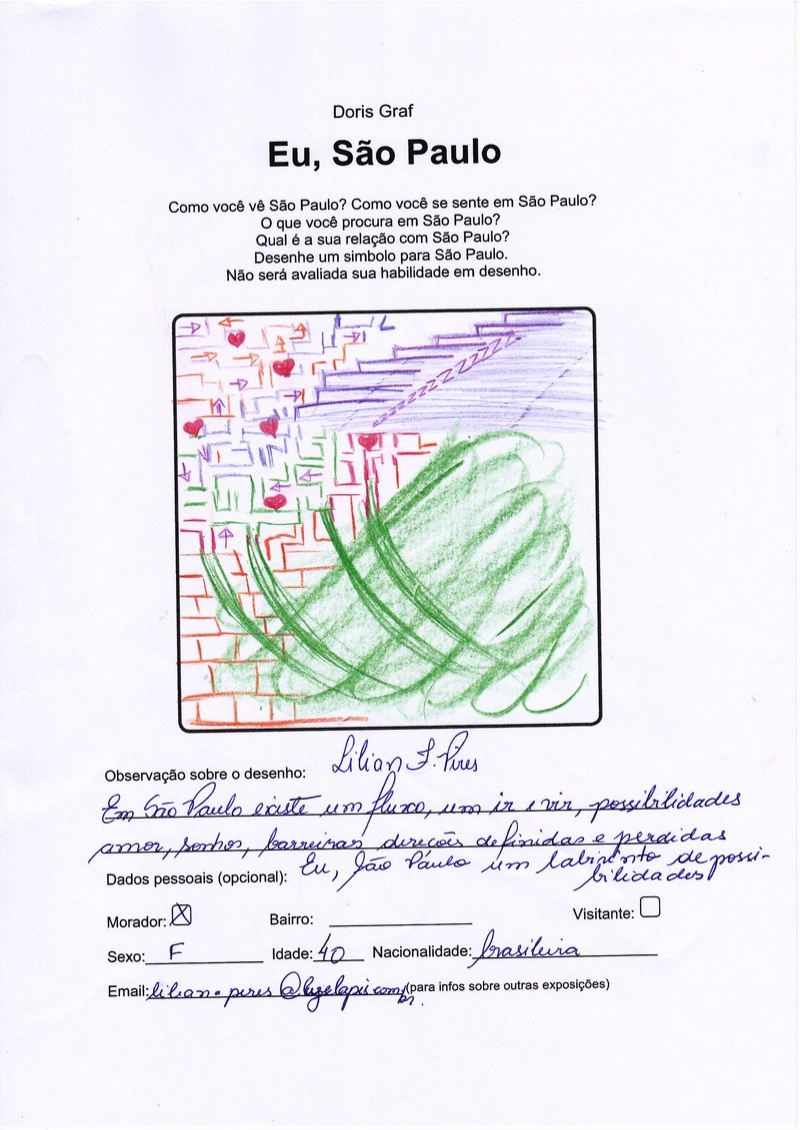 Doris Graf
Eu, São Paulo
Como você vê São Paulo? Como você se sente em São Paulo?
O que você procura em São Paulo?
Qual é a sua relação com São Paulo?
Desenhe um simbolo para São Paulo.
Não será avaliada sua habilidade em desenho.
Observação sobre o desenho: Lilian F. Pires
Em São Paulo existe um fluxo, um ir e vir, possibilidades
amor, sonhos, barreiras direções definidas e perdidas
Eu, São Paulo um labirinto de possi-
bilidades
Dados pessoais (opcional):
Morador: X Bairro: Visitante:
Sexo: F Idade: 40 Nacionalidade: brasileira
Email: lilian.peres @luzelapis.com.br. (para infos sobre outras exposições)